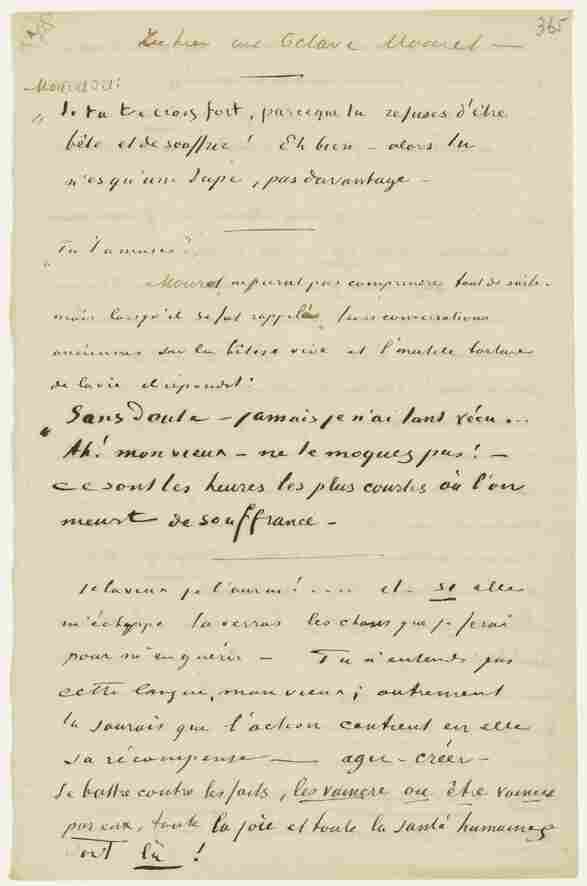 365
Octave Mouret —
Mouret dit:
" Si tu te crois fort, parceque tu refuses d'être
bête et de souffrir ! Eh bien – alors tu
n'es qu'une dupe, pas davantage –
" Tu t'amuses?
Mouret ne parut pas comprendre tout de suite.
mais lorsqu'il se fut rappelé leurs conversations
anciennes sur la bêtise vive et l'inutile torture
de la vie il répondit:
" Sans Doute – jamais je n'ai tant vécu ...
Ah! mon vieux – ne te moques pas! –
ce sont les heures les plus courtes où l'on
meurt de souffrance –
Je la veux je l'aurai! .... et si elle
m'échappe tu verras les choses que je ferai
pour m'en guérir – Tu n'entends pas
cette langue, mon vieux; autrement
tu saurais que l'action contient en elle
sa récompense — agir – créer –
se battre contre les faits, les vaincre ou être vaincu
par eux, toute la joie et toute la santé humaines
sont là !